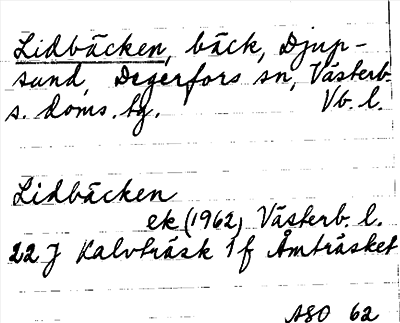 Lidbäcken, bäck, Djup-
sund, Degerfors sn, Västerb.
s. doms. tg. Vb. l.
Lidbäcken
ek (1962) Västerb. l.
22 J Kalvträsk 1 f Åmträsket
ASO 62